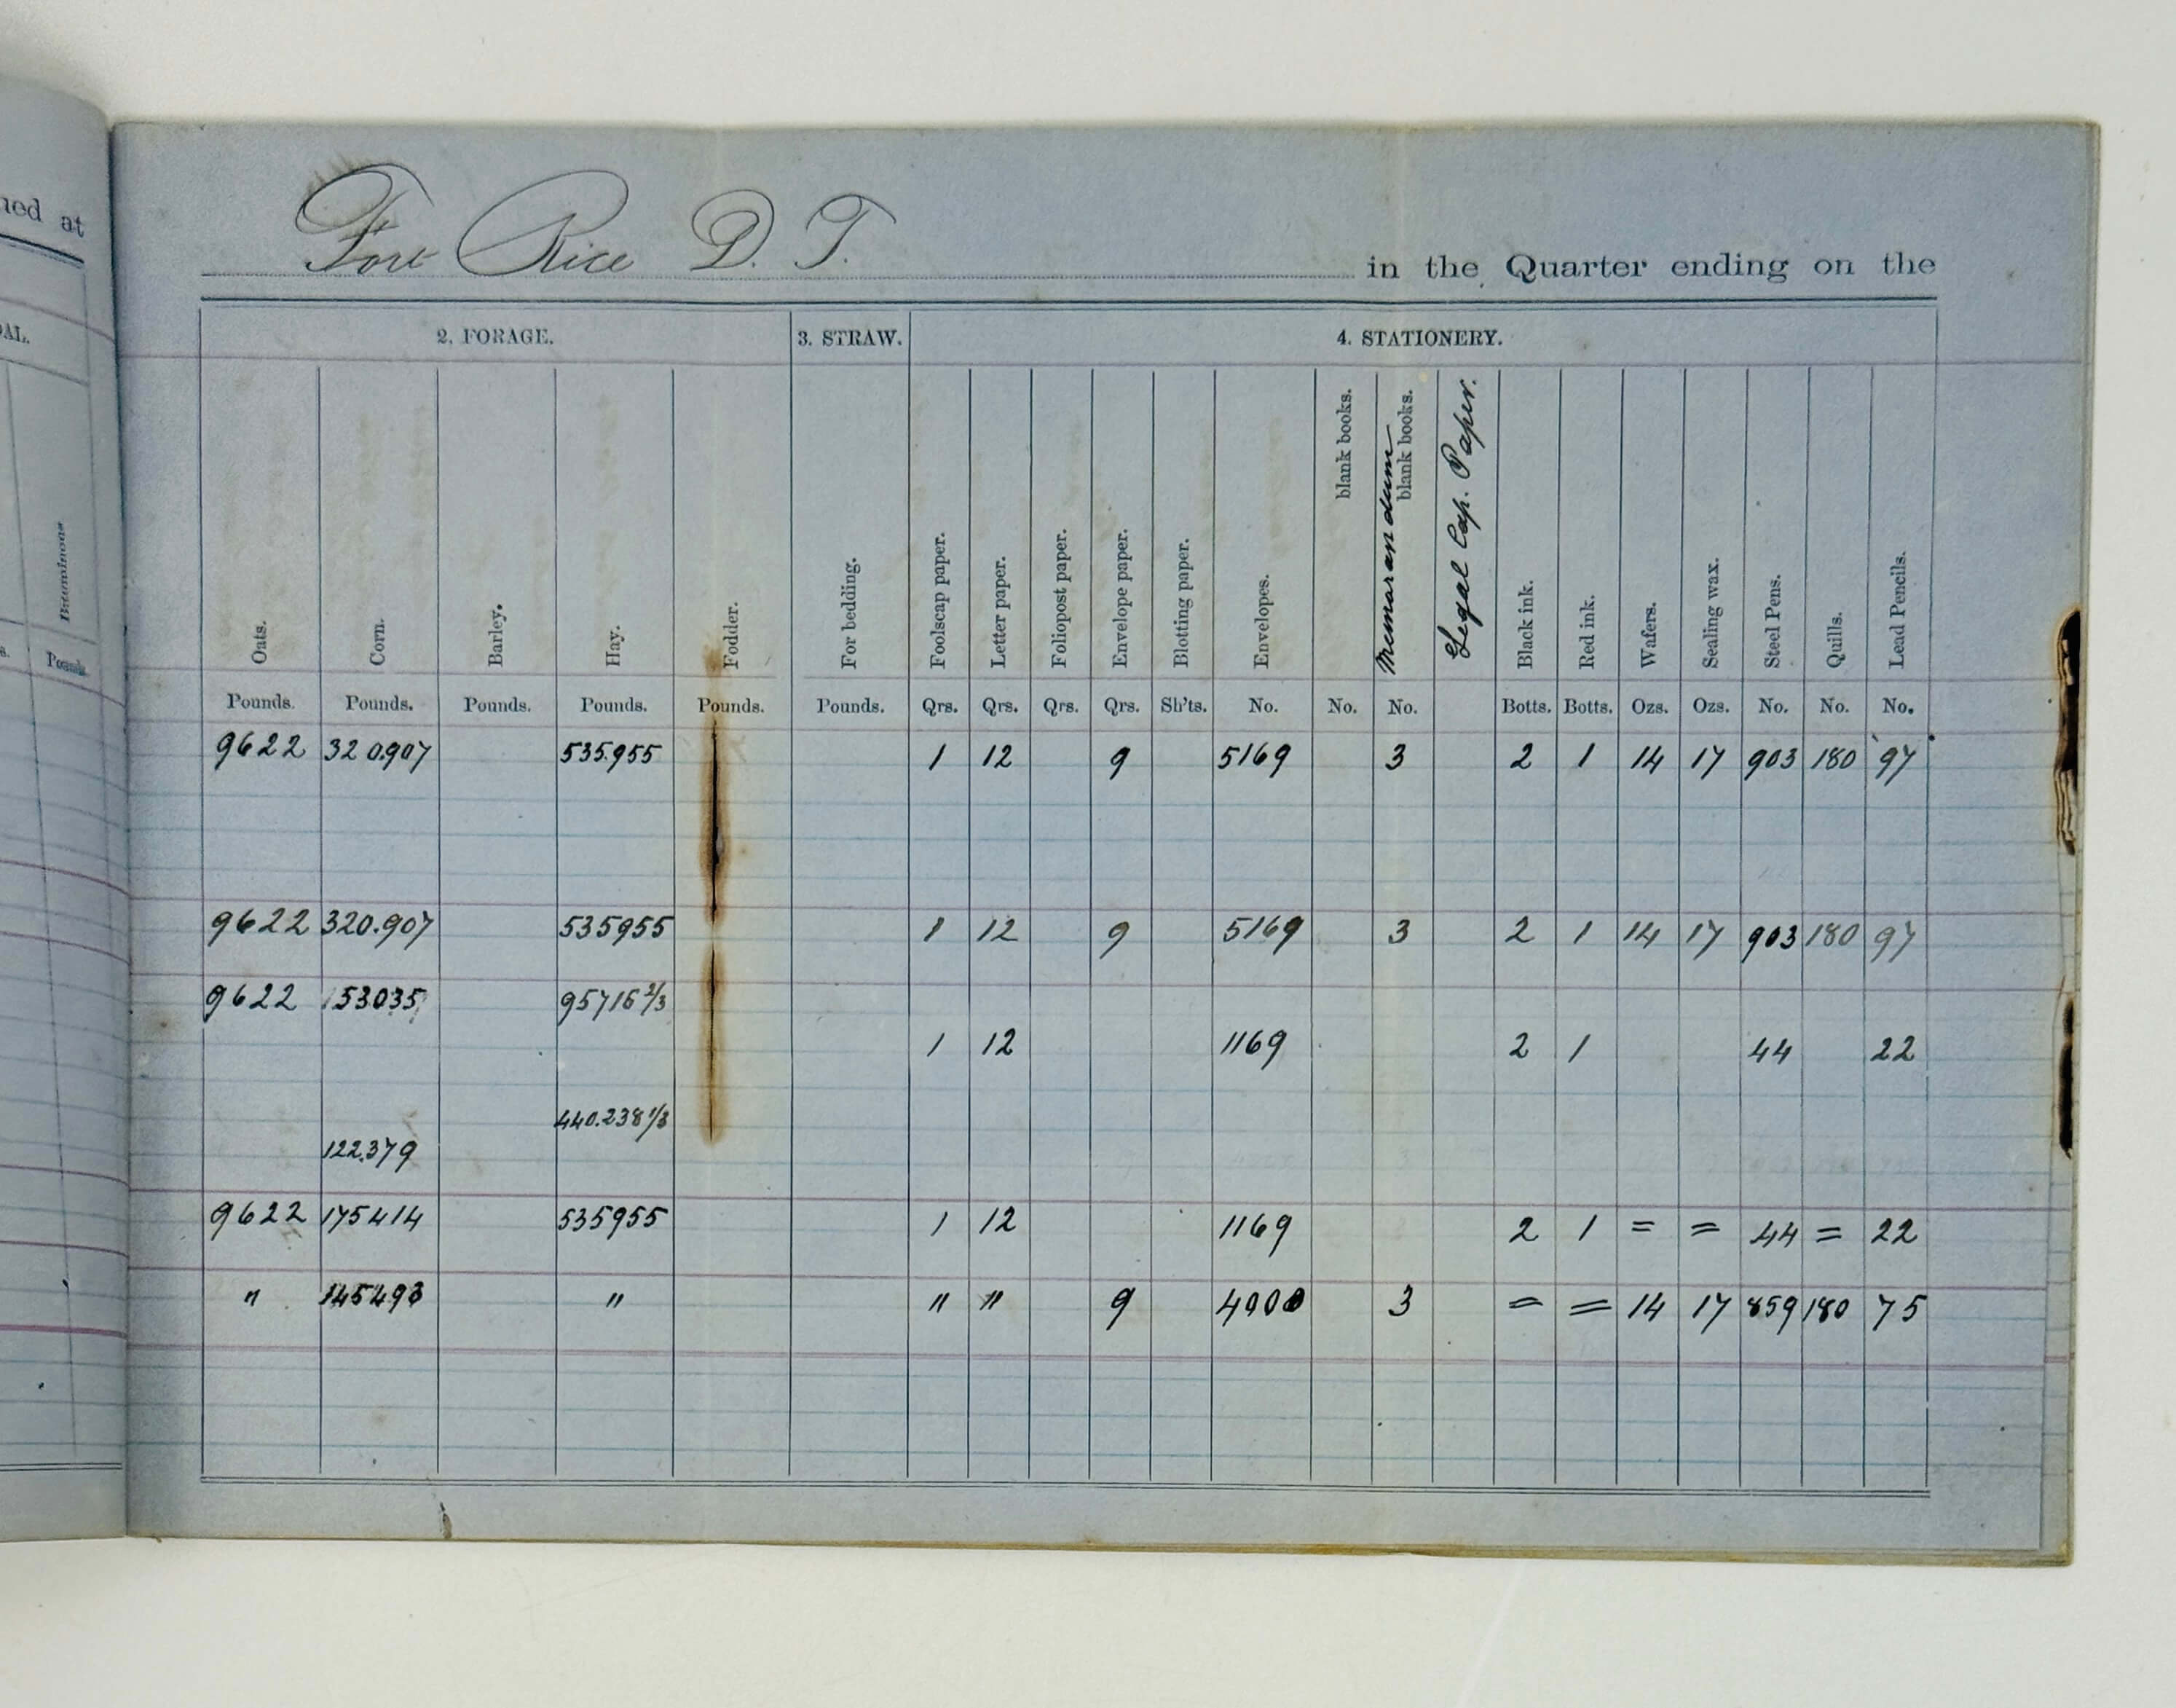 ned at
OAL.
Bituminous
s. Pounds.
Fort Rice D. T. in the Quarter ending on the
2. FORAGE. 3. STRAW. 4. STATIONERY.
Oats. Corn. Barley. Hay. Fodder. For bedding. Foolscap paper. Letter paper. Foliopost paper. Envelope paper. Blotting paper. Envelopes. blank books. Memorandum blank books. Legal Cap. Paper. Black ink. Red ink. Wafers. Sealing wax. Steel Pens. Quills. Lead Pencils.
Pounds. Pounds. Pounds. Pounds. Pounds. Pounds. Qrs. Qrs. Qrs. Qrs. Sh'ts. No. No. No. Botts. Botts. Ozs. Ozs. No. No. No.
9622 320.907 535.955 1 12 9 5169 3 2 1 14 17 903 180 97
9622 320.907 535955 1 12 9 5169 3 2 1 14 17 903 180 97
9622 153035 95716 2/3
1 12 1169 2 1 44 22
440.238 1/3
122.379
9622 175414 535955 1 12 1169 2 1 = = 44 = 22
" 145493 " " " 9 4000 3 = = 14 17 859 180 75